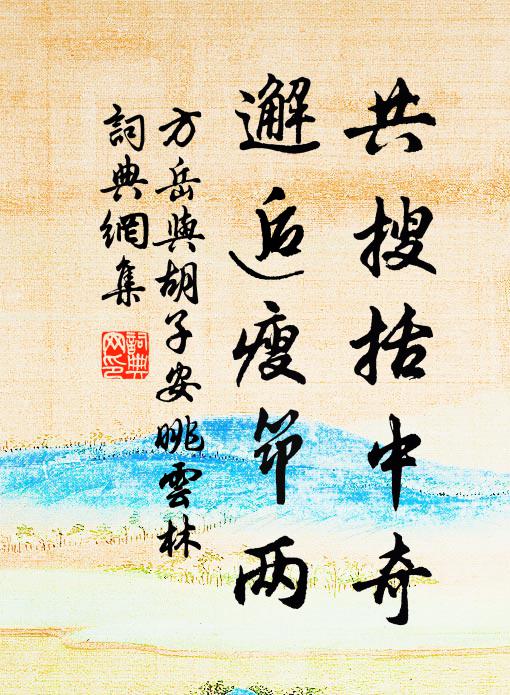 共搜括中奇
邂逅瘦笻两
方岳與胡子安眺雲林
詞典網集
詞典網印